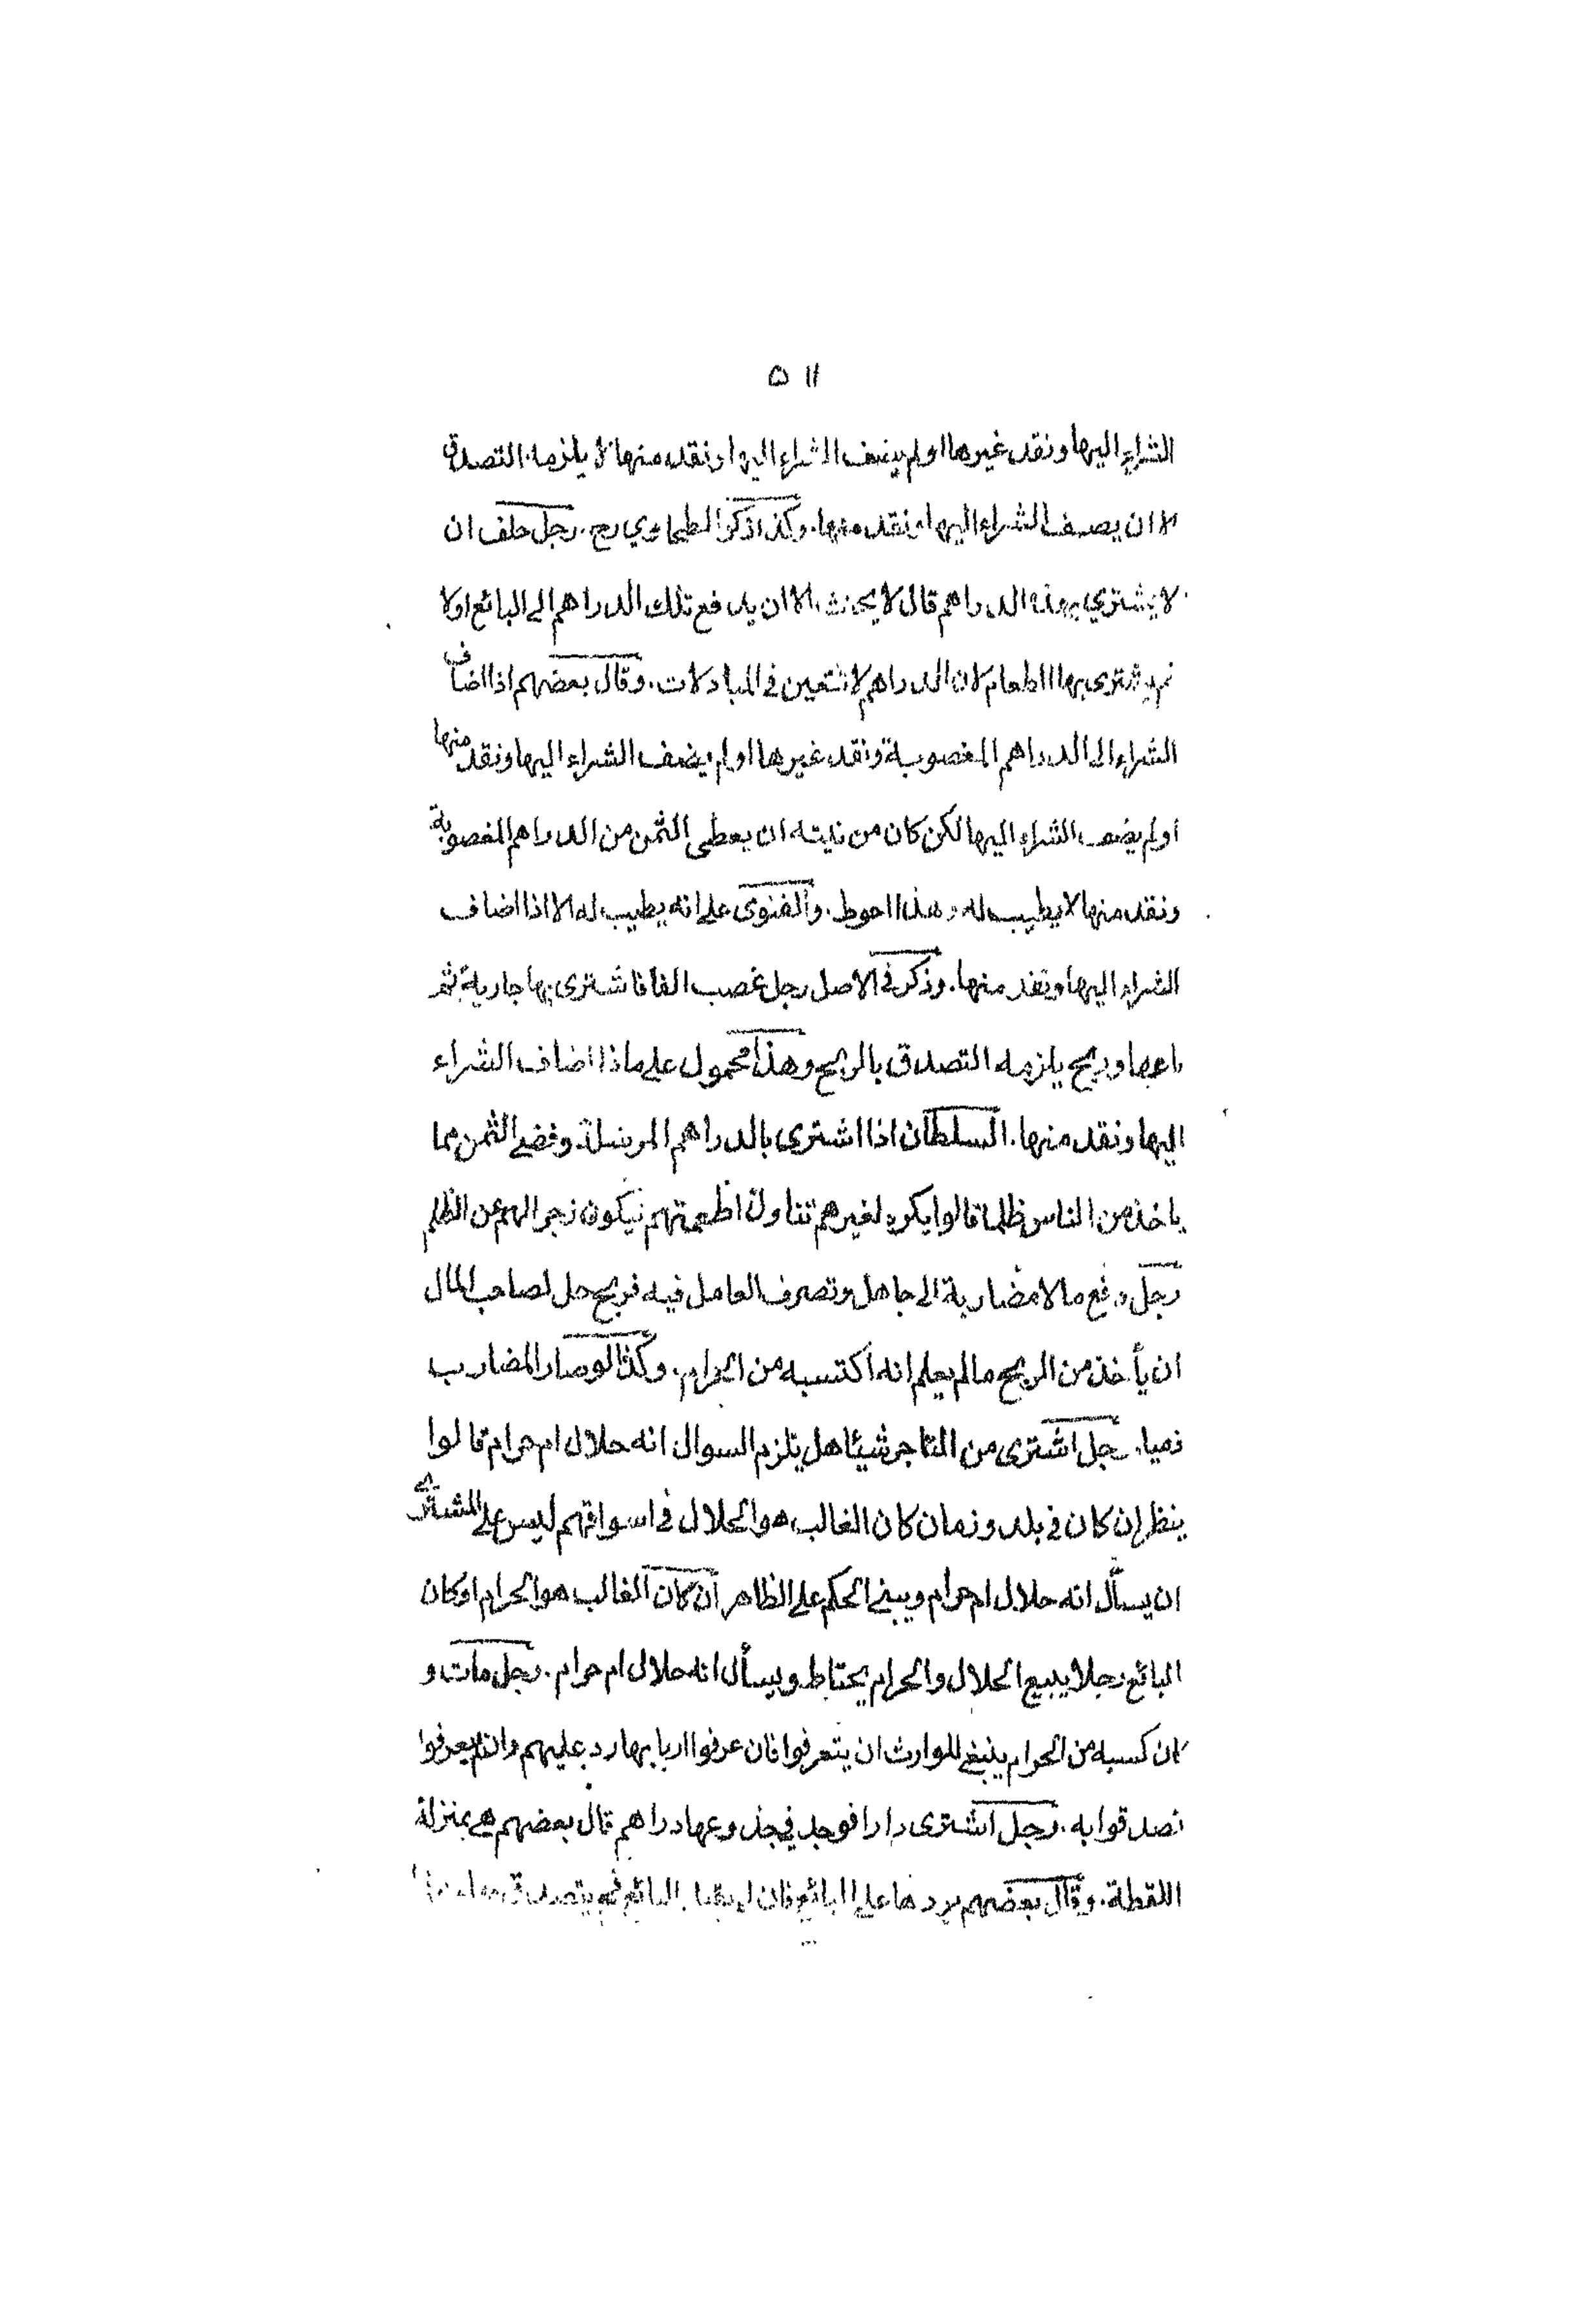 ۵۱۱
الشراء اليها ونقد غيرها او لم يضف الشراء اليها ونقد منها لا يلزمه التصدق
الا ان يضف الشراء اليها ونقد منها. وكذا ذكر الطحاوي رح. رجل حلف ان
لا يشتري بهذه الدراهم قال لا يحنث الا ان يدفع تلك الدراهم الى البائع اولا
ثم يشترى بها الطعام لان الدراهم لا تتعين في المبادلات. وقال بعضهم اذا اضاف
الشراء الى الدراهم المغصوبة ونقد غيرها او لم يضف الشراء اليها ونقد منها
او لم يضف الشراء اليها لكن كان من نيته ان يعطى الثمن من الدراهم المغصوبة
ونقد منها لا يطيب له وهذا احوط. والفتوى على انه يطيب له الا اذا اضاف
الشراء اليها ونقد منها. وذكر في الاصل رجل غصب الفا فاشترى بها جارية ثم
باعها وربح يلزمه التصدق بالربح وهذا محمول على ما اذا اضاف الشراء
اليها ونقد منها. السلطان اذا اشترى بالدراهم المرسلة وقضى الثمن مما
ياخذ من الناس ظلما قالوا يكره لغيرهم تناول اطعمتهم ليكون زجرا لهم عن الظلم
رجل دفع مالا مضاربة الى جاهل وتصرف العامل فيه فربح حل لصاحب المال
ان يأخذ من الربح ما لم يعلم انه اكتسبه من الحرام. وكذا لو صار المضارب
ذميا. رجل اشترى من التاجر شيئا هل يلزم السوال انه حلال ام حرام قالوا
ينظر ان كان في بلد وزمان كان الغالب هو الحلال في اسواقهم ليس على المشترى
ان يسأل انه حلال ام حرام ويبنى الحكم على الظاهر ان كان الغالب هو الحرام او كان
البائع رجلا يبيع الحلال والحرام يحتاط ويسأل انه حلال ام حرام. رجل مات و
كان كسبه من الحرام ينبغي للوارث ان يتعرفوا فان عرفوا اربابها رد عليهم وان لم يعرفوا
تصدقوا به. رجل اشترى دارا فوجد في جذوعها دراهم قال بعضهم هي بمنزلة
اللقطة. وقال بعضهم يردها على البائع فان لم يقبل البائع يتصدق